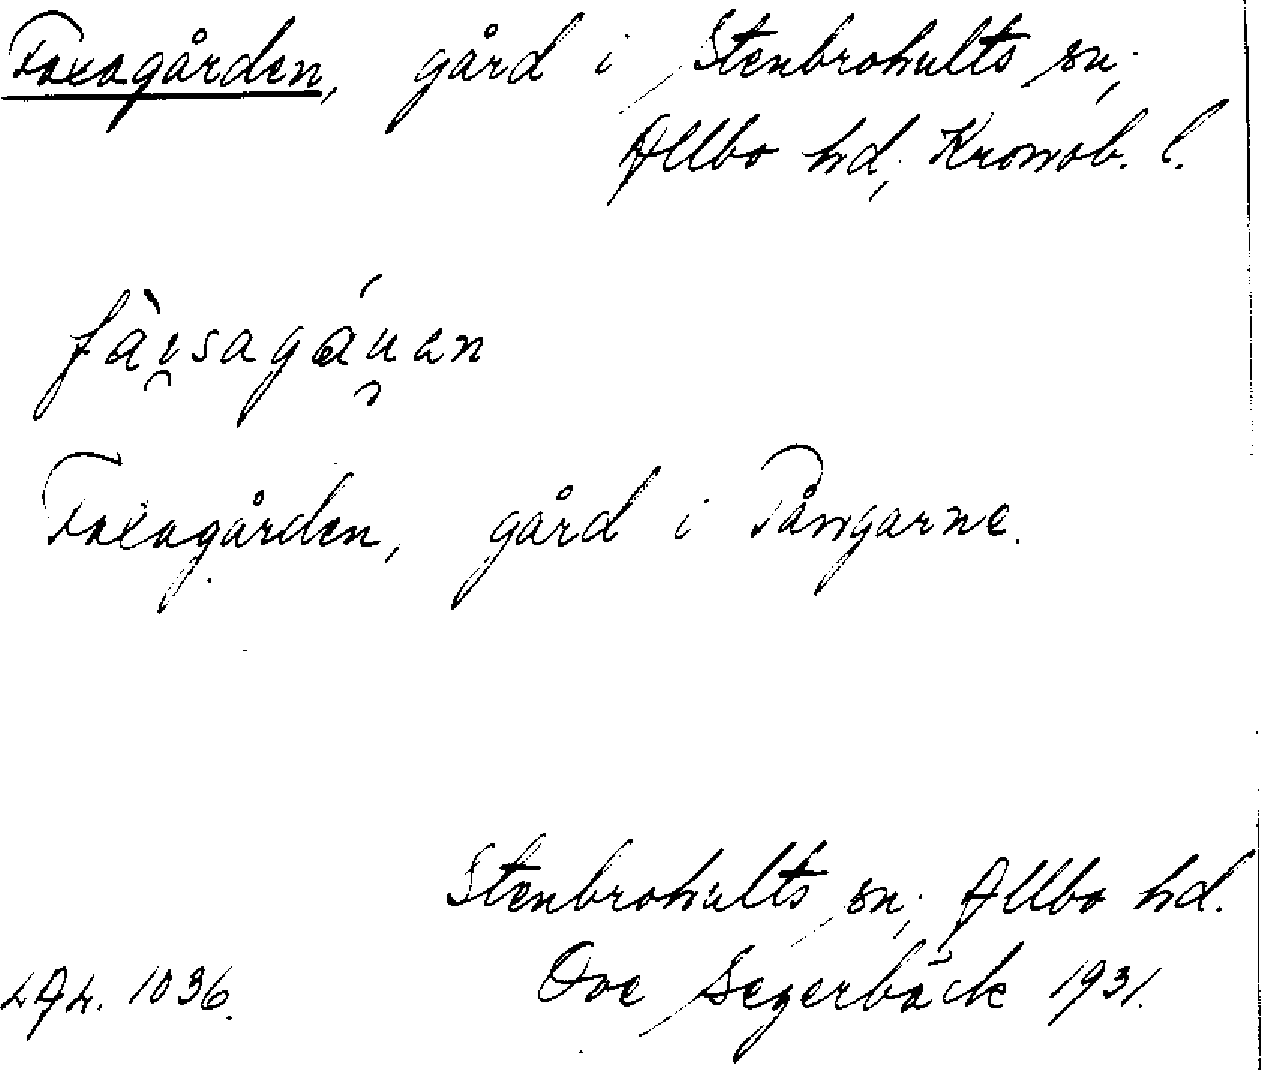 Faxagården, gård i Stenbrohults sn;
Allbo hd; Kronob. l.
Faxagården, gård i Pångarne.
Stenbrohults sn; Allbo hd.
LAL. 1036. Ove Segerbäck 1931.